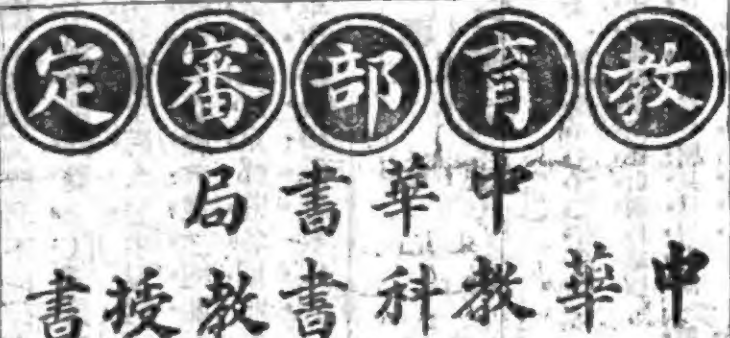 教育部審定
中華書局
中華教科書教授書